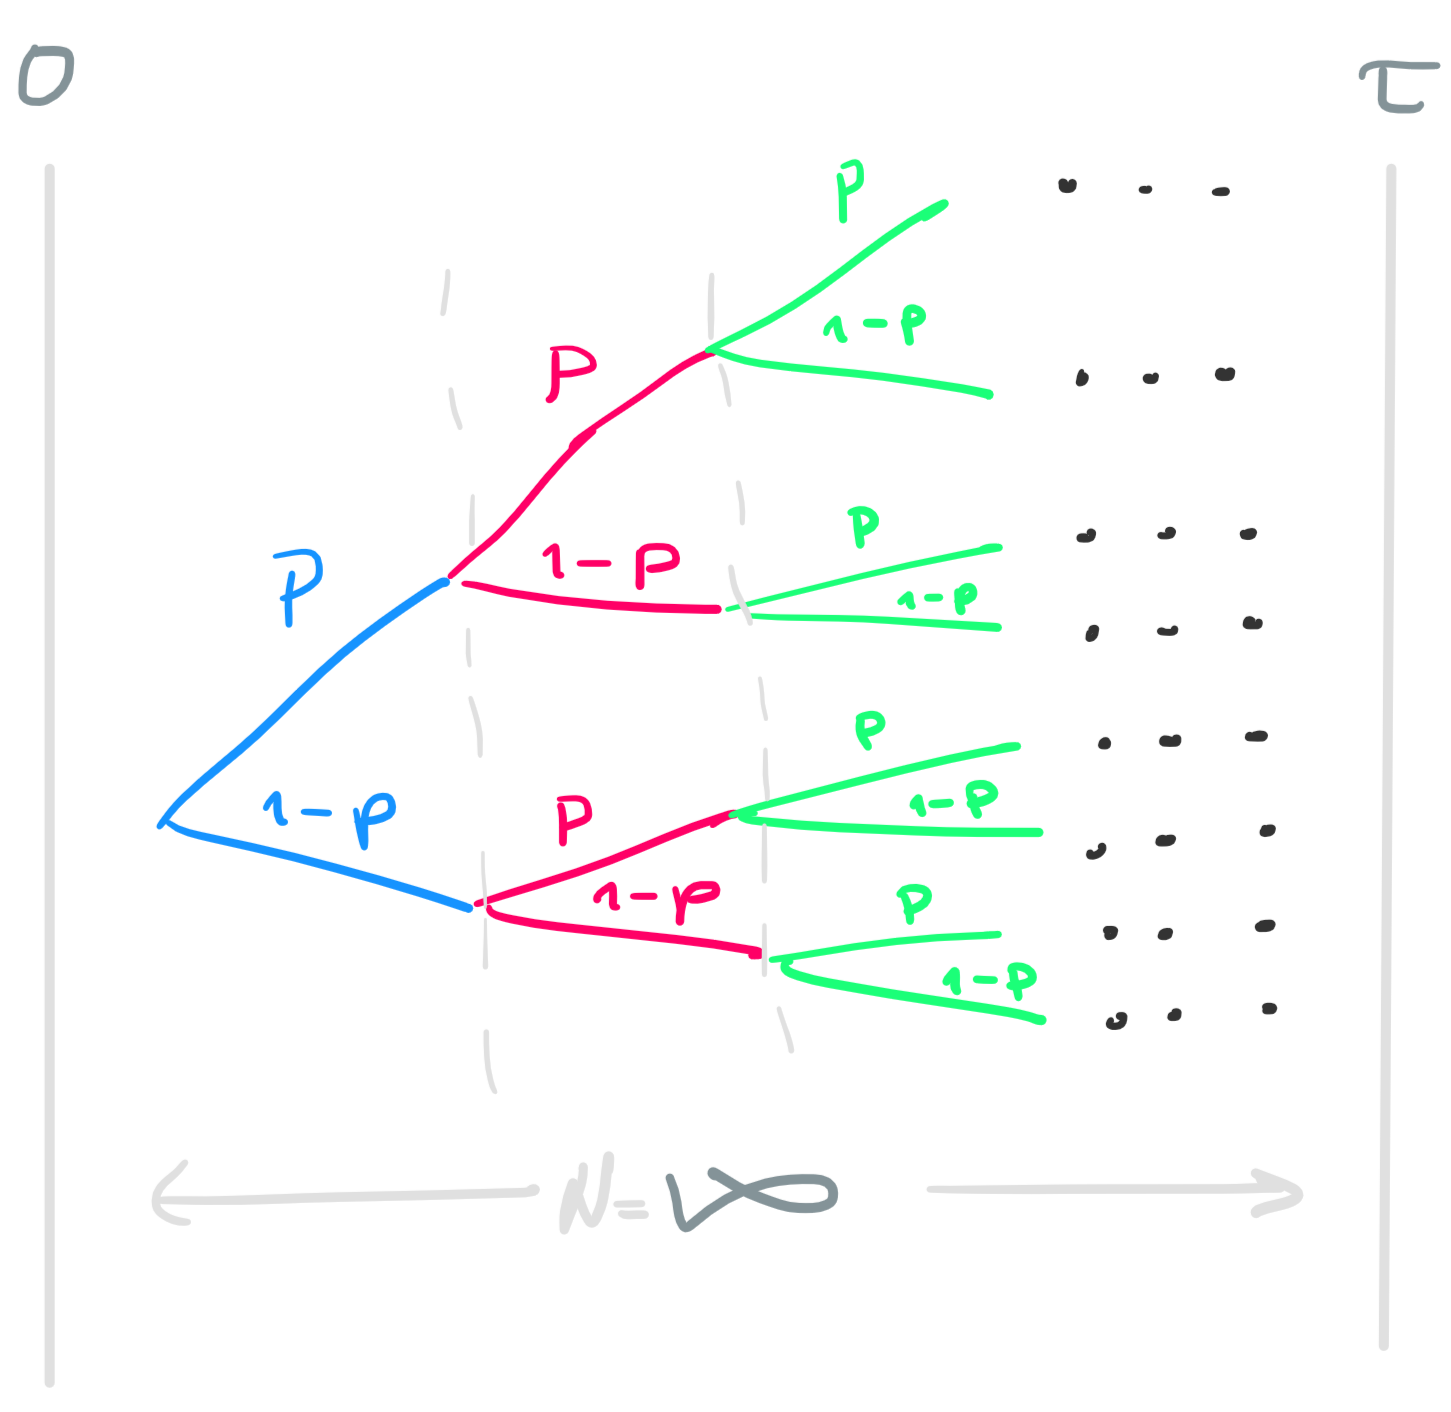 0 τ
p
1-p
P
p
1-P
P
1-p
p
1-p
P
1-p
p
1-p
p
1-p
N=∞